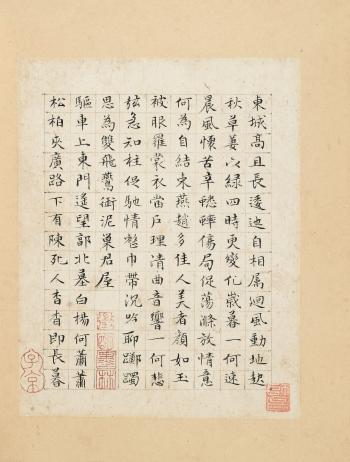 東城高且長逶迤自相屬迴風動地起
秋草萋以綠四時更變化歲暮一何速
晨風懷苦辛蟋蟀傷局促蕩滌放情意
何為自結束燕趙多佳人美者顏如玉
被服羅裳衣當戶理清曲音響一何悲
弦急知柱促馳情整巾帶沉吟聊躑躅
思為雙飛鷰銜泥巢君屋
驅車上東門遙望郭北墓白楊何蕭蕭
松柏夾廣路下有陳死人杳杳即長暮
子京